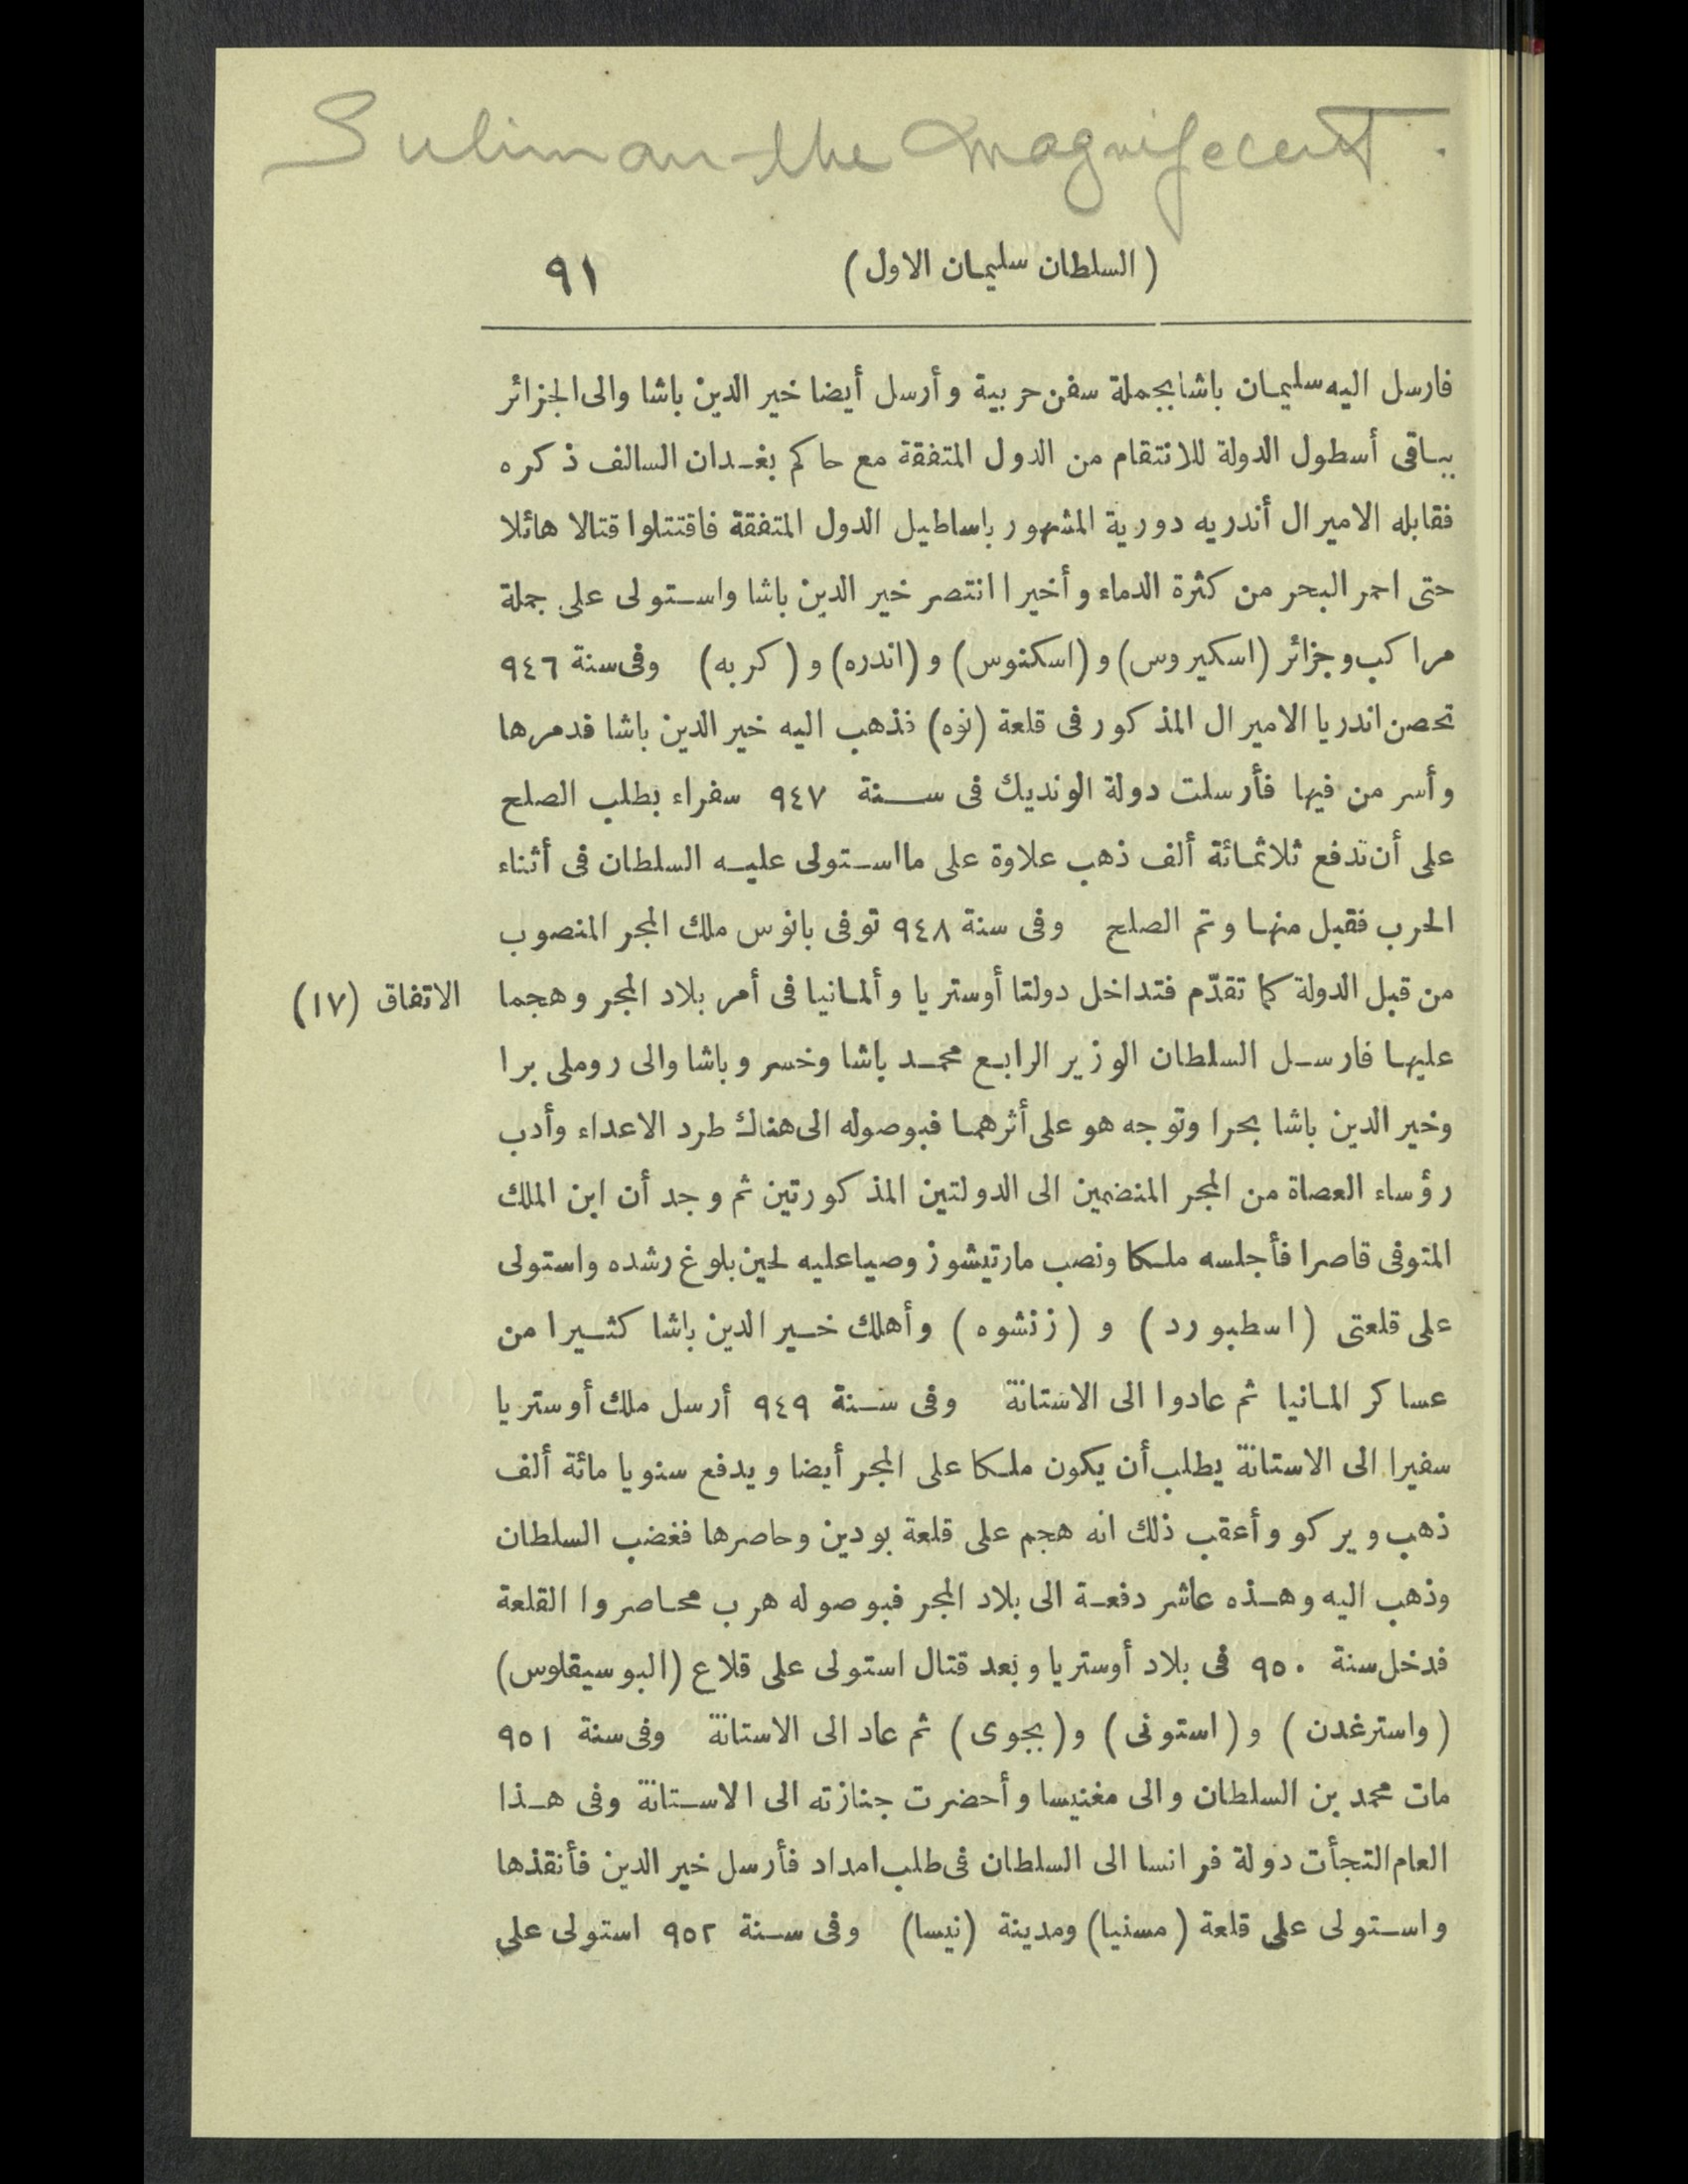 Suliman the Magnifecent.
(السلطان سليمان الاول) ٩١
فارسل اليه سليمان باشا بجملة سفن حربية وأرسل أيضا خير الدين باشا والى الجزائر
بباقى أسطول الدولة للانتقام من الدول المتفقة مع حاكم بغدان السالف ذكره
فقابله الاميرال أندريه دورية المشهور باساطيل الدول المتفقة فاقتتلوا قتالا هائلا
حتى احمر البحر من كثرة الدماء وأخيرا انتصر خير الدين باشا واستولى على جملة
مراكب وجزائر (اسكيروس) و (اسكنوس) و (اندره) و (كربه) وفى سنة ٩٤٦
تحصن اندريا الاميرال المذكور فى قلعة (نوه) فذهب اليه خير الدين باشا فدمرها
وأسر من فيها فأرسلت دولة الونديك فى سنة ٩٤٧ سفراء بطلب الصلح
على أن تدفع ثلاثمائة ألف ذهب علاوة على ما استولى عليه السلطان فى أثناء
الحرب فقبل منها وتم الصلح وفى سنة ٩٤٨ توفى بانوس ملك المجر المنصوب
من قبل الدولة كما تقدّم فتداخل دولتا أوستريا وألمانيا فى أمر بلاد المجر وهجما
الاتفاق (١٧)
عليها فارسل السلطان الوزير الرابع محمد باشا وخسرو باشا والى روملى برا
وخير الدين باشا بحرا وتوجه هو على أثرهما فبوصوله الى هناك طرد الاعداء وأدب
رؤساء العصاة من المجر المنضمين الى الدولتين المذكورتين ثم وجد أن ابن الملك
المتوفى قاصرا فأجلسه ملكا ونصب مارتيشوز وصيا عليه لحين بلوغ رشده واستولى
على قلعتى (اسطبورد) و (زنشوه) وأهلك خير الدين باشا كثيرا من
عساكر المانيا ثم عادوا الى الاستانة وفى سنة ٩٤٩ أرسل ملك أوستريا
سفيرا الى الاستانة يطلب أن يكون ملكا على المجر أيضا ويدفع سنويا مائة ألف
ذهب ويركو وأعقب ذلك انه هجم على قلعة بودين وحاصرها فغضب السلطان
وذهب اليه وهذه عاشر دفعة الى بلاد المجر فبوصوله هرب محاصروا القلعة
فدخل سنة ٩٥٠ فى بلاد أوستريا وبعد قتال استولى على قلاع (البوسيقلوس)
(واسترغدن) و (استونى) و (بجوى) ثم عاد الى الاستانة وفى سنة ٩٥١
مات محمد بن السلطان والى مغنيسا وأحضرت جنازته الى الاستانة وفى هذا
العام التجأت دولة فرانسا الى السلطان فى طلب امداد فأرسل خير الدين فأنقذها
واستولى على قلعة (مسنيا) ومدينة (نيسا) وفى سنة ٩٥٢ استولى على